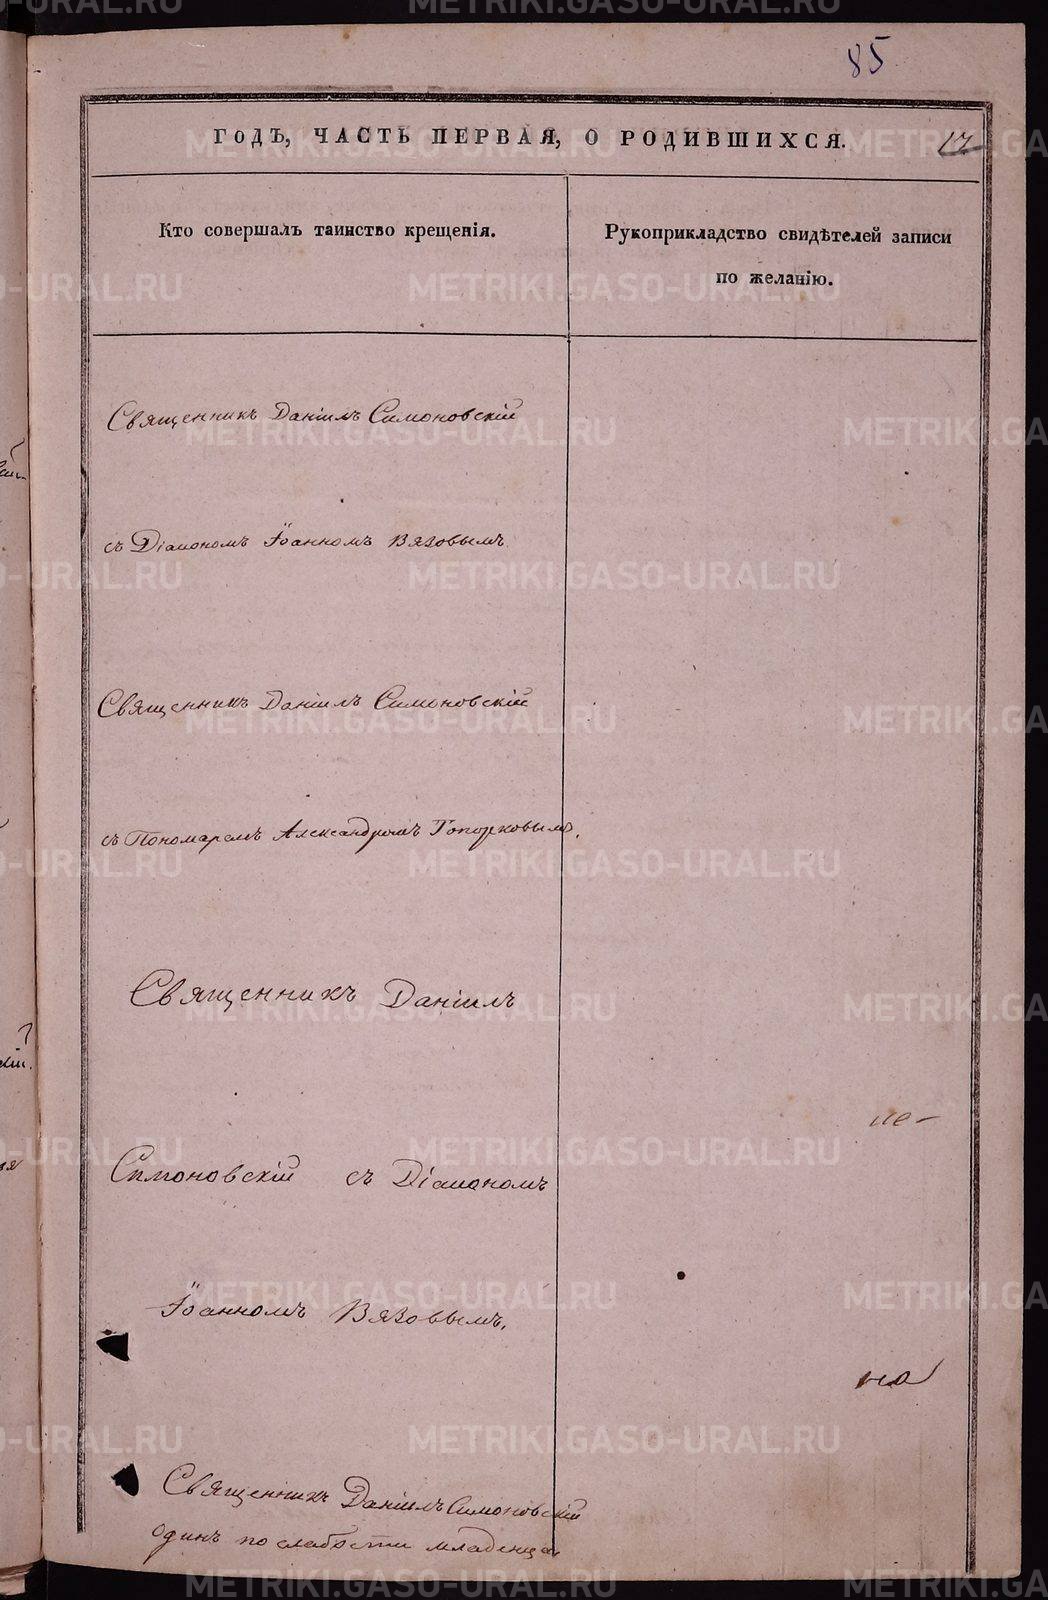 85
ГОДЪ, ЧАСТЬ ПЕРВАЯ, О РОДИВШИХСЯ.
12
Кто совершалъ таинство крещенія.
Рукоприкладство свидѣтелей записи
по желанію.
Священникъ Даніилъ Симоновскій
съ Діакономъ Іоанномъ Вязовымъ
Священникъ Даніилъ Симоновскій
съ Пономаремъ Александромъ Топорковымъ.
Священникъ Даніилъ
Симоновскій съ Діакономъ
Іоанномъ Вязовымъ.
на
Священникъ Даніилъ Симоновскій
одинъ по слабости младенца
METRIKI.GASO-URAL.RU